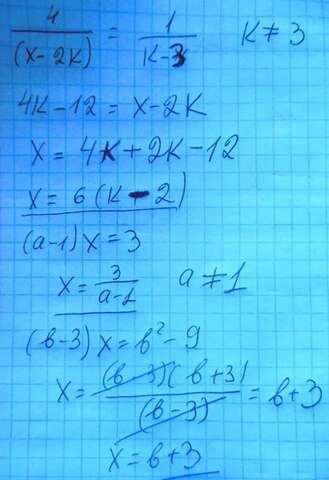 4/(x-2k) = 1/(k-3) k≠3
4k-12 = x-2k
x = 4k+2k-12
x = 6(k-2)
(a-1)x = 3
x = 3/(a-1) a≠1
(b-3)x = b²-9
x = (b-3)(b+3)/(b-3) = b+3
x = b+3